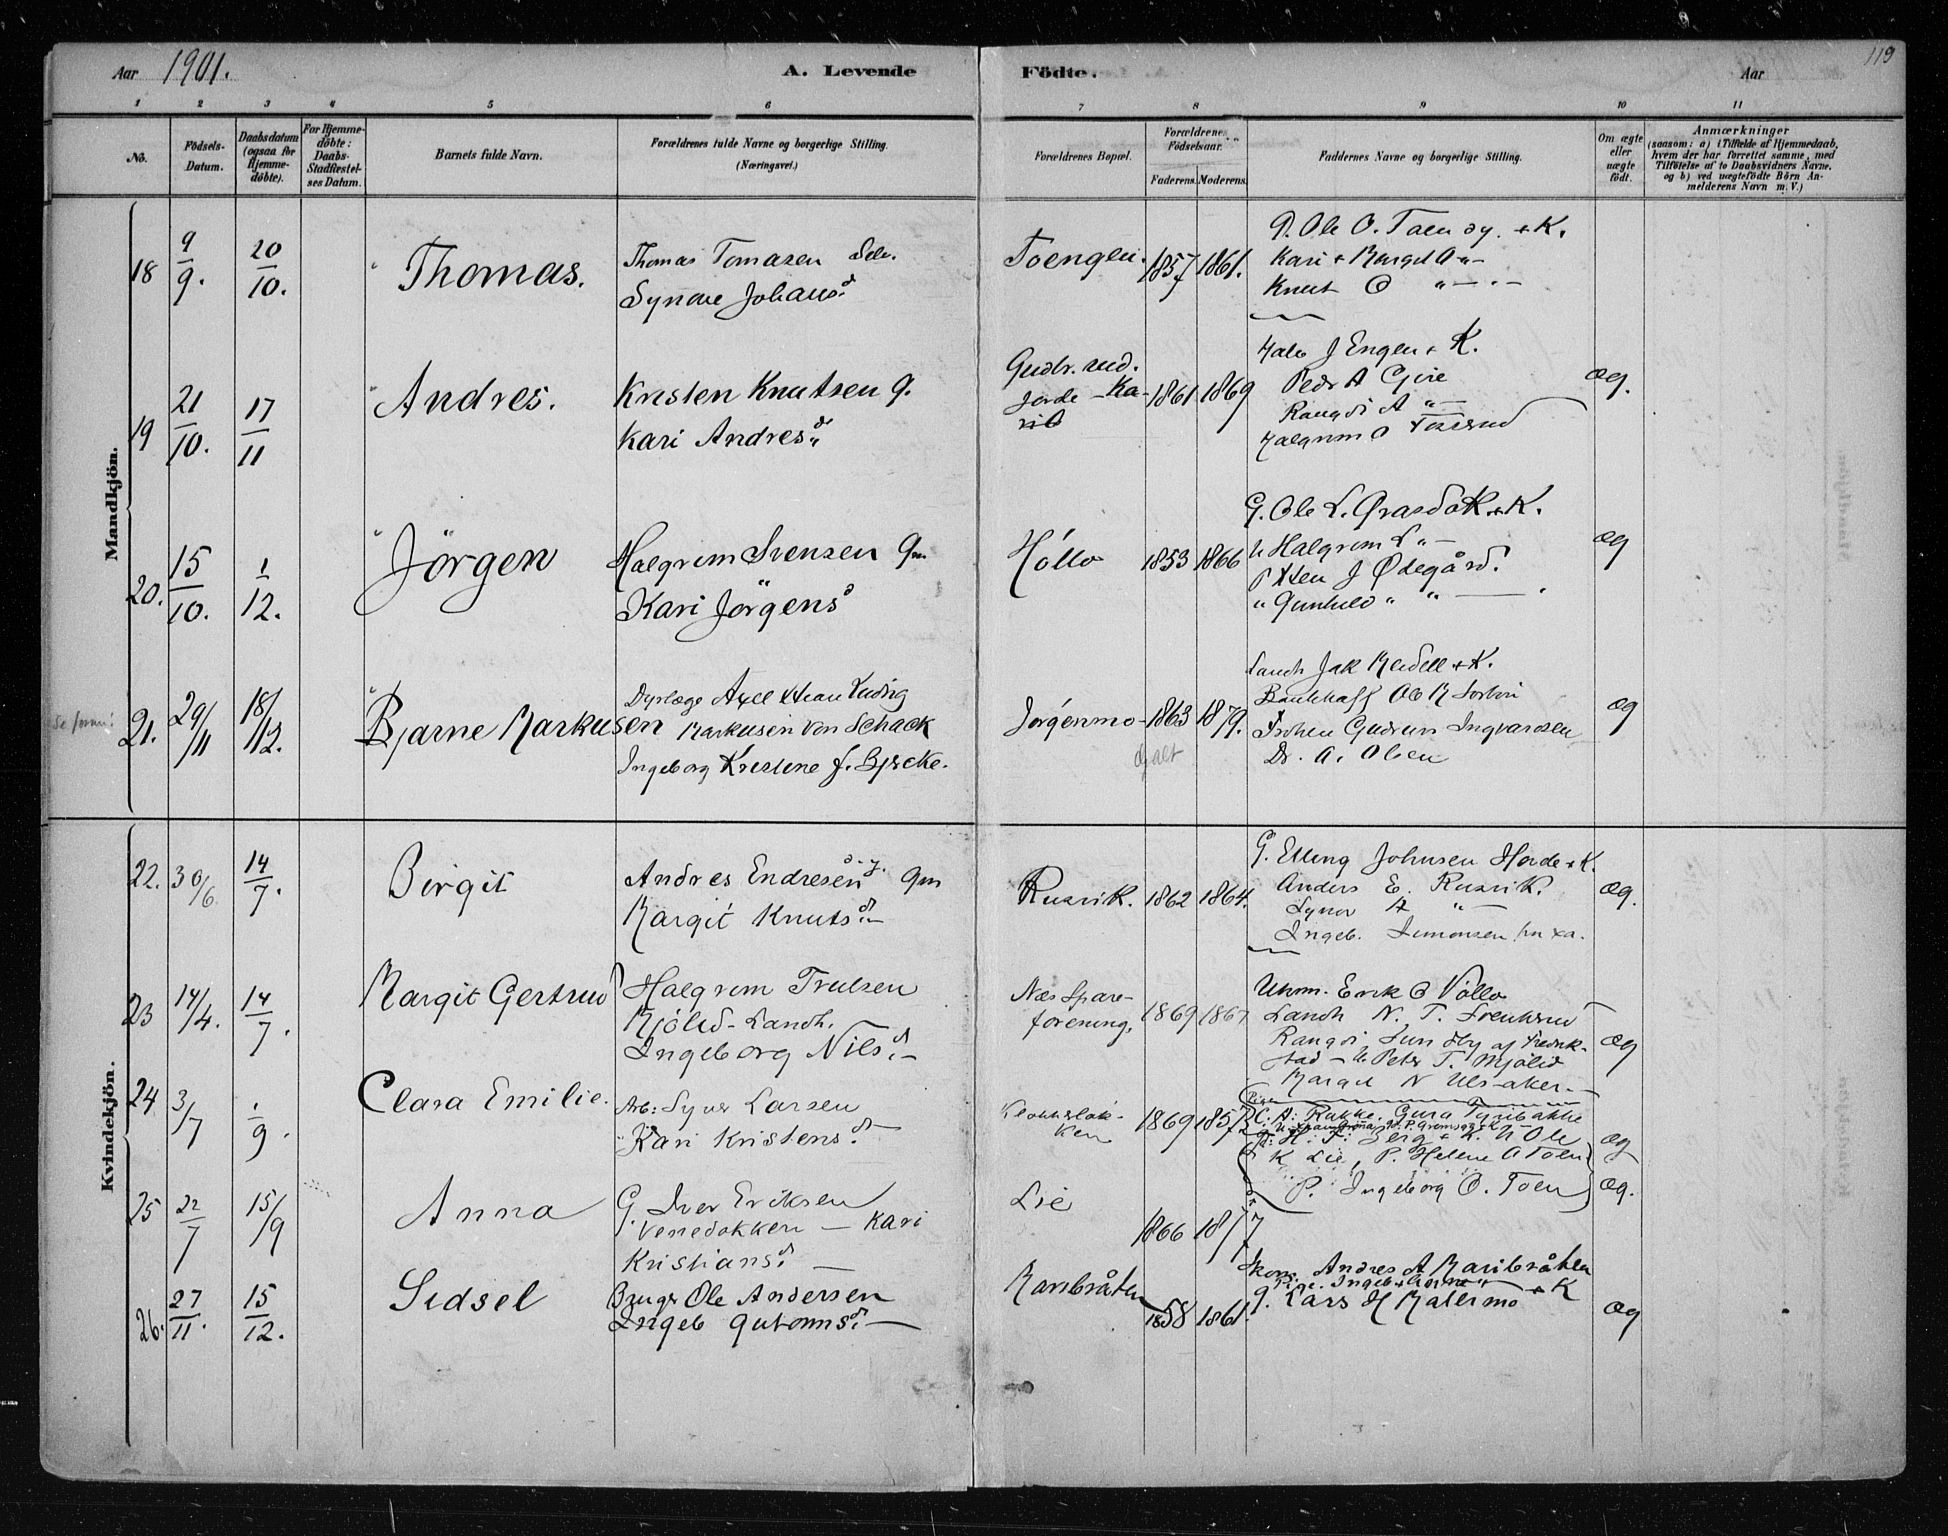 Aar 1901. A. Levende Födte. Aar 119
1 2 3 4 5 6 7 8 9 10 11
No. Födsels-Datum. Daabsdatum (ogsaa for Hjemme-döbte). For Hjemme-döbte: Daabs-Stadfæstel-ses Datum. Barnets fulde Navn. Forældrenes fulde Navne og borgerlige Stilling. (Næringsvei.) Forældrenes Bopæl. Forældrenes Födselsaar. Faderens. Moderens. Faddernes Navne og borgerlige Stilling. Om ægte eller uægte födt. Anmærkninger
(saasom: a) i Tilfælde af Hjemmedaab,
hvem der har forrettet samme, med
Tilföielse af to Daabsvidners Navne.
og b) ved uægtefödte Börn An-
melderens Navn m. V.)
Mandkjön.
18 9/9. 20/10. Thomas. Thomas Tomasen Selv.
Synøve Johans.d
Toengen. 1857 1861.
P. Ole O. Toen og + K.
Kari + Margit O "-
Knut O " - " -
19 21/10. 17/11 Andres. Kristen Knutsen G.
Kari Andres.d
Gudbr.rud.
Jorde - Ka-
1861 1869
Halv J Engen + K.
Peder A
Rangdi A "-
Halgrim O
æg.
20. 15/10. 1/12. Jörgen Halgrim Svensen Gm
Kari Jörgens.d
Höllo 1853 1866
G. Ole L. + K.
U Halgrim L " -
Sten J Ødegård.
" Gunhild " " -
æg
21. 29/11 18/12. Bjarne Markusen Dyrlæge Axel Ludvig
Markusen von Schack
Ingeborg Kristine f. Bjerke.
Jørgenmo - 1863 1879.
Landh Jak + K.
Bankkass Ole
Frøken Gudrun Ingvardsen
Dr. A. Olsen
æg
Kvindekjön.
22. 30/6. 14/7. Birgit Andres Endresen Gm
Margit Knuts.d -
Rusvik. 1862 1864.
G. Elling Johnsen Horde + K.
Anders E. Rusvik.
Synøv A " -
Ingeb. Simonsen
æg.
23 14/4. 14/7. Margit Gertrud Halgrim Trulsen
Mjölid - Landh.
Ingeborg Nils.d -
Næs Spare-
forening, 1869 1867
Erik O Völlo
Landh N. T.
Rangdi af Fredrik-
stad - U Peter T. Mjölid
Margit N Ulsaker -
æg
24 3/7 1/9. Clara Emilie. Arb: Syver Larsen
Kari Kristens.d -
Klokkerløk-
ken 1869 1857
C. A: Rukke. Gura
H: F: Berg + K. U Ole
K Lie, P. Helene A Toen
æg
25 22/7 15/9 Anna G. Iver Eriksen
Venedokken - Kari
Kristians.d -
Lie 1866 1877
P. Ingeborg O. Toen
æg.
26. 27/11. 15/12. Sidsel Bruger Ole Andersen
Ingeb Gutorms.d -
Maribråten 1858 1861.
Skom. Andres A Maribråten
Pige. Ingeb + Anne "
G. Lars H + K
æg